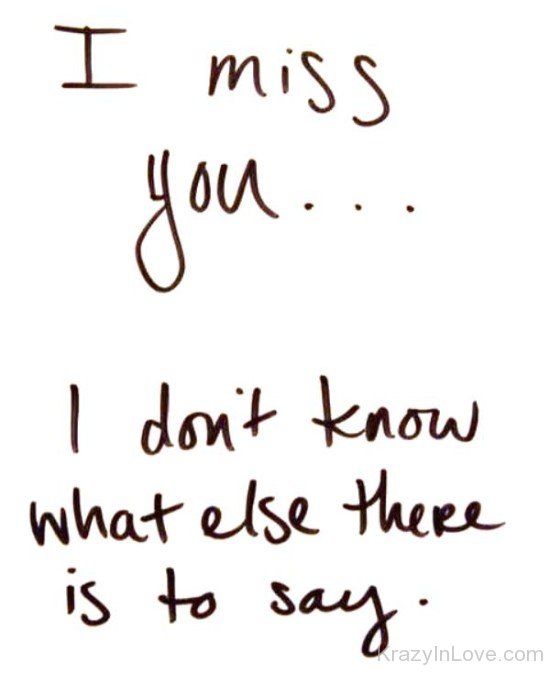 I miss
you...
I don't know
what else there
is to say.
KrazyInLove.com